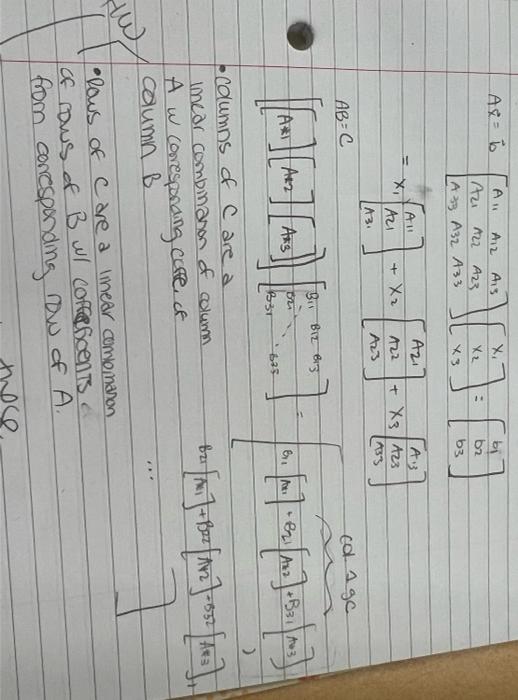 Ax̄ = b̄ [A11 A12 A13 / A21 A22 A23 / A33 A32 A33] [x1 / x2 / x3] = [b1 / b2 / b3]
= x1 [A11 / A21 / A31] + x2 [A21 / A22 / A23] + x3 [A13 / A23 / A33]
AB = C
col 1 of C
[[A*1] [A*2] [A*3]] [B11 B12 B13 / B21 ⋱ / B31 B23] = [B11 [A*1] + B21 [A*2] + B31 [A*3] ,
B21 [A*1] + B22 [A*2] + B32 [A*3] ,
... ]
• columns of C are a
linear combination of column
A w corresponding coeff. of
column B
HW
• Rows of C are a linear combination
of rows of B w/ coefficients
from corresponding row of A.